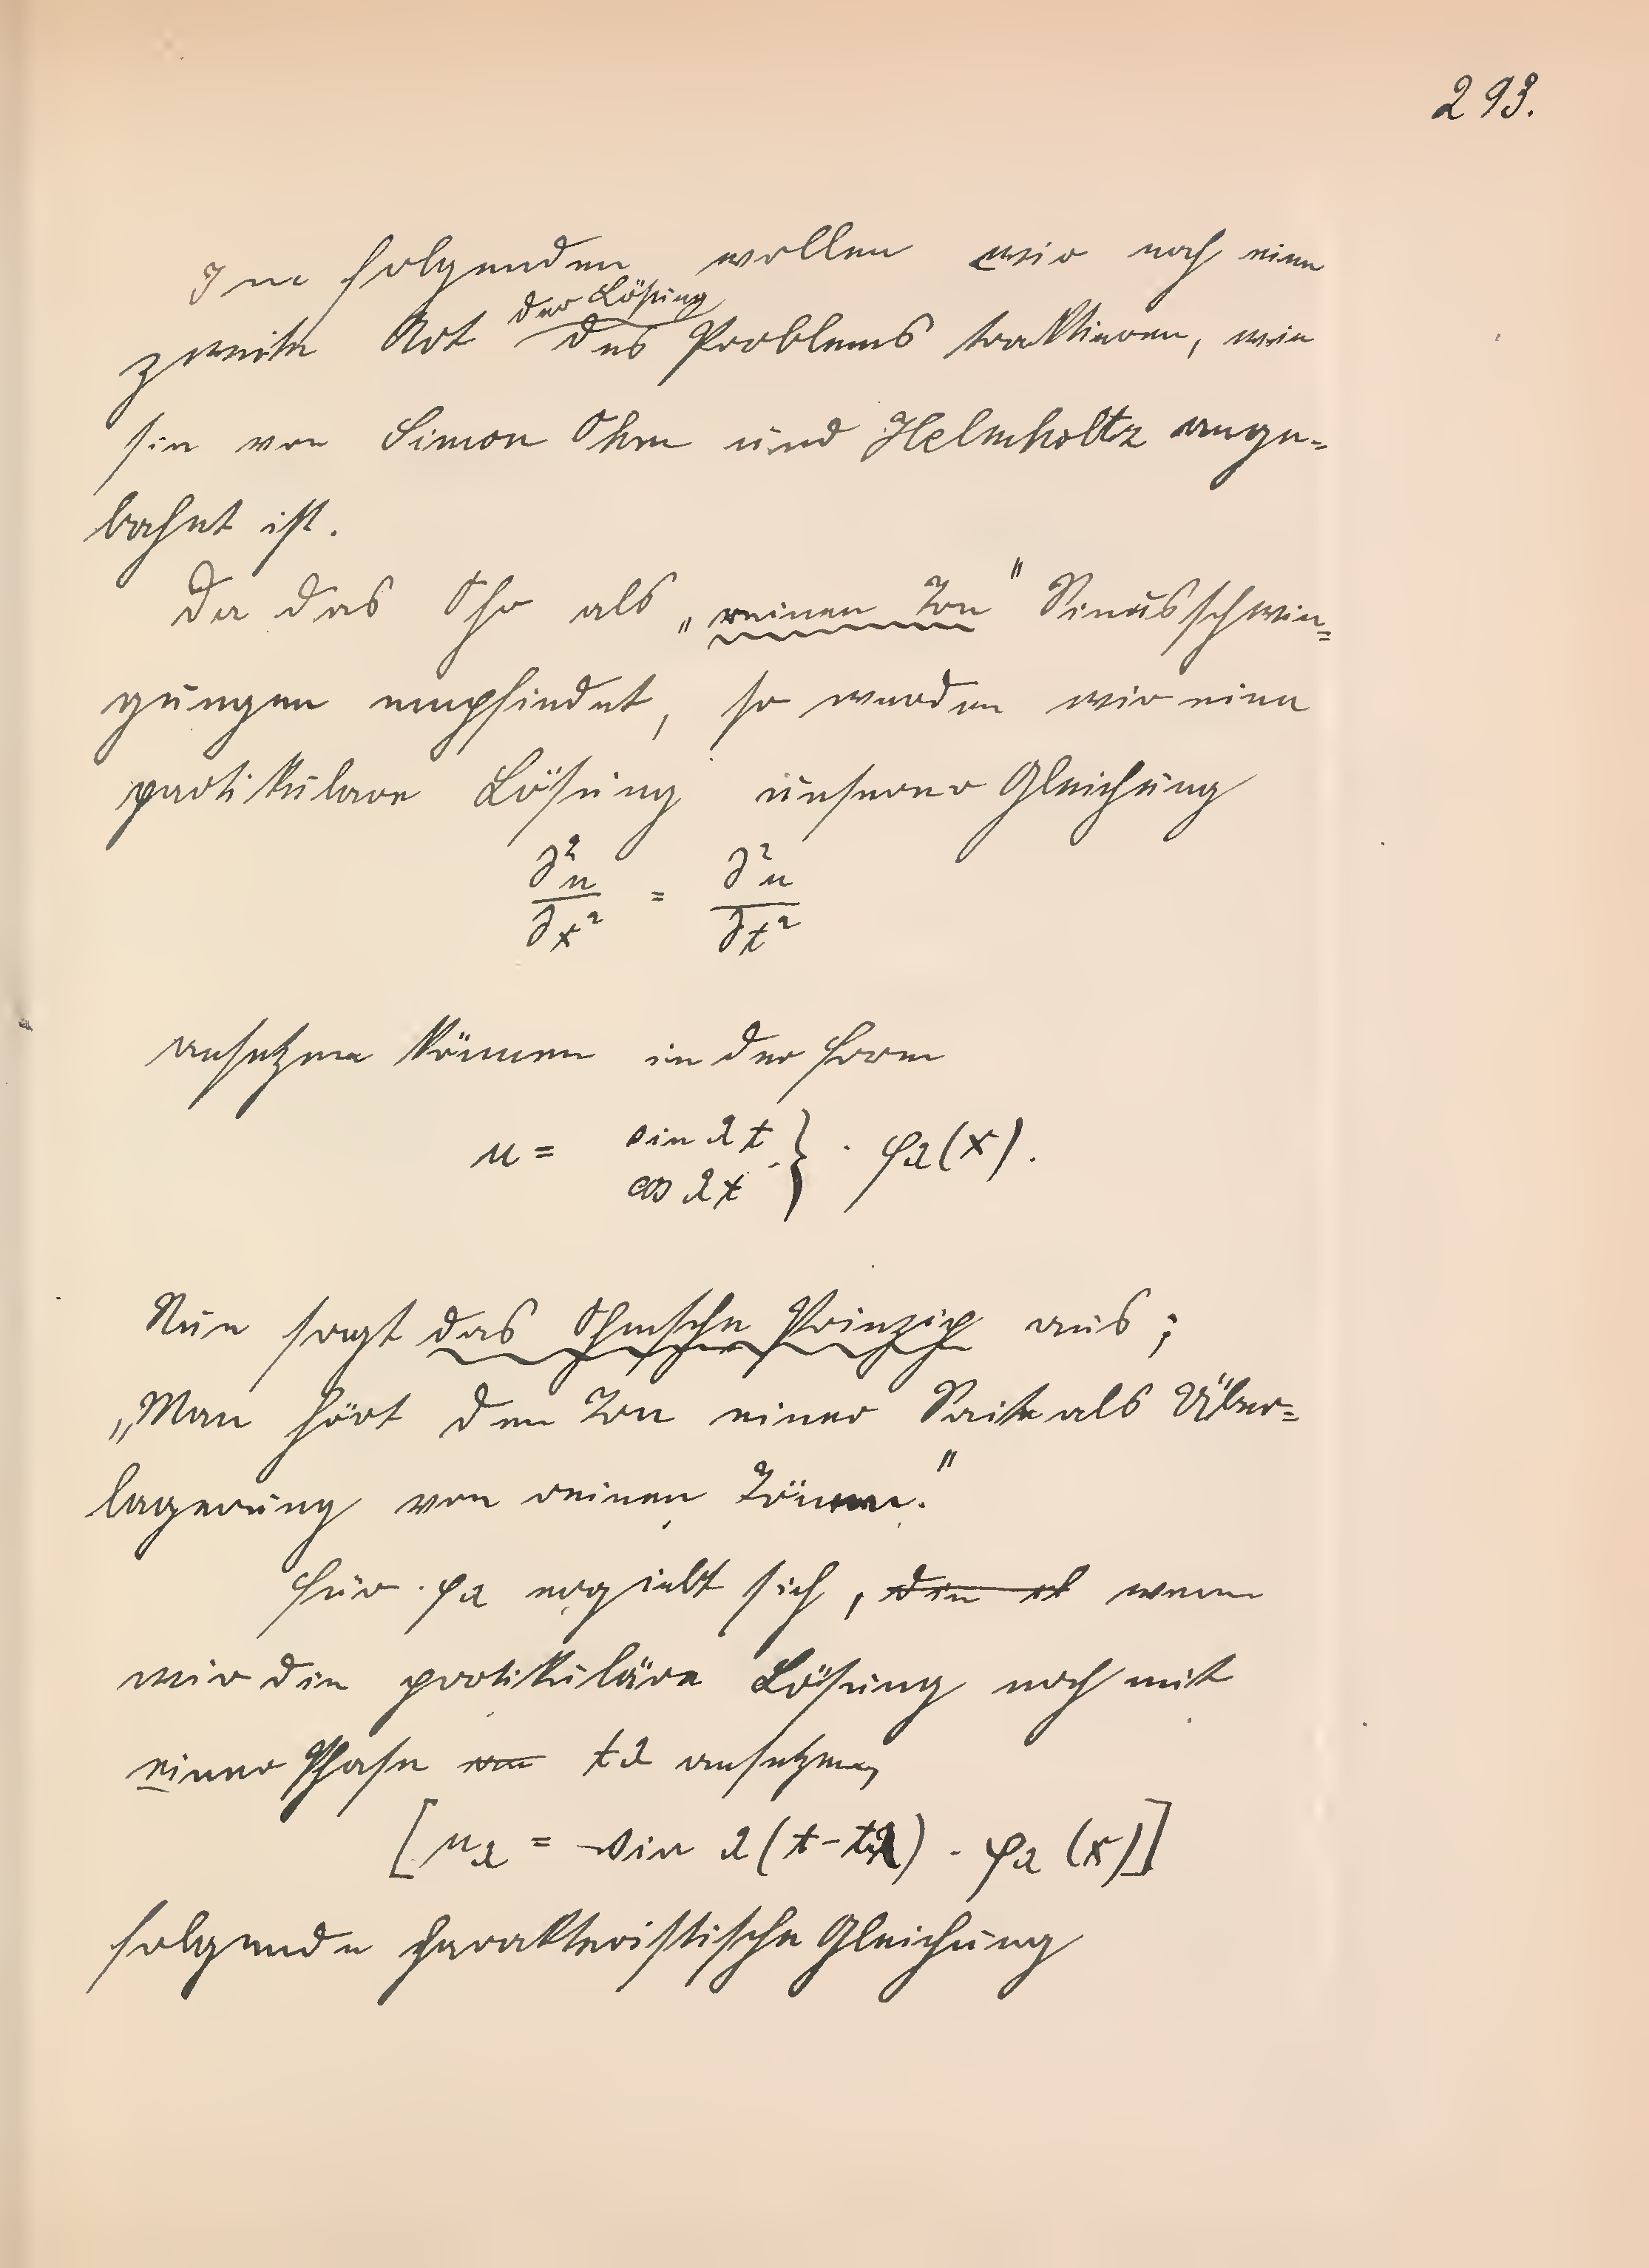 293.
Im folgenden wollen wir noch eine
der Lösung
zweite Art des Problems traktieren, wie
sie von Simon Ohm und Helmholtz ange=
bahnt ist.
Da das Ohr als „reinen Ton" Sinusschwin=
gungen empfindet, so werden wir eine
partikulare Lösung unserer Gleichung
∂²u/∂x² = ∂²u/∂t²
ansetzen können in der Form
u = sin λt
cos λt } · φλ(x).
Nun sagt das Ohmsche Prinzip aus;
„Man hört den Ton einer Saite als Über=
lagerung von reinen Tönen."
Für φλ ergiebt sich, wenn
wir die partikuläre Lösung noch mit
einer Phase tλ ansetzen,
[uλ = sin λ(t-tλ) · φλ(x)]
folgende charakteristische Gleichung